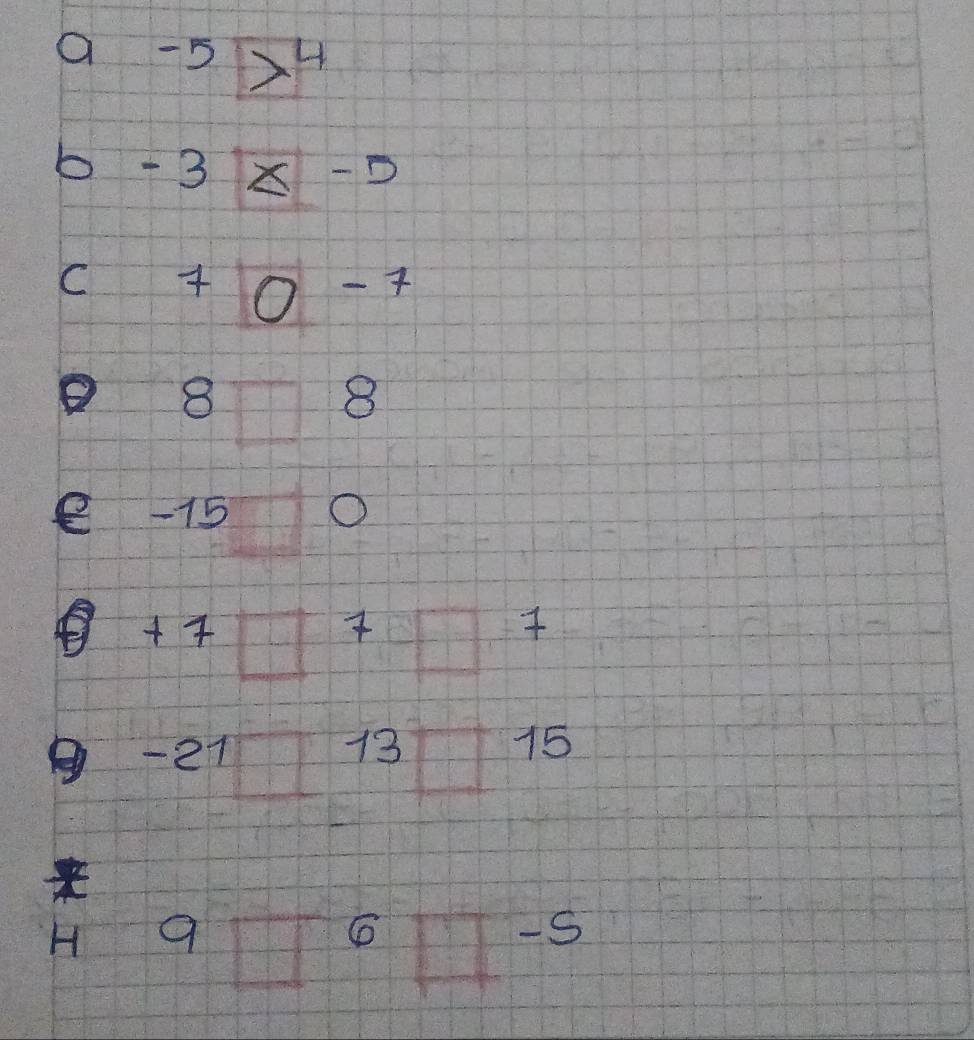 a -5 > 4
b -3 × -5
c 7 0 -7
D 8 8
e -15 0
f +7 7 7
g -21 13 15
H 9 6 -5